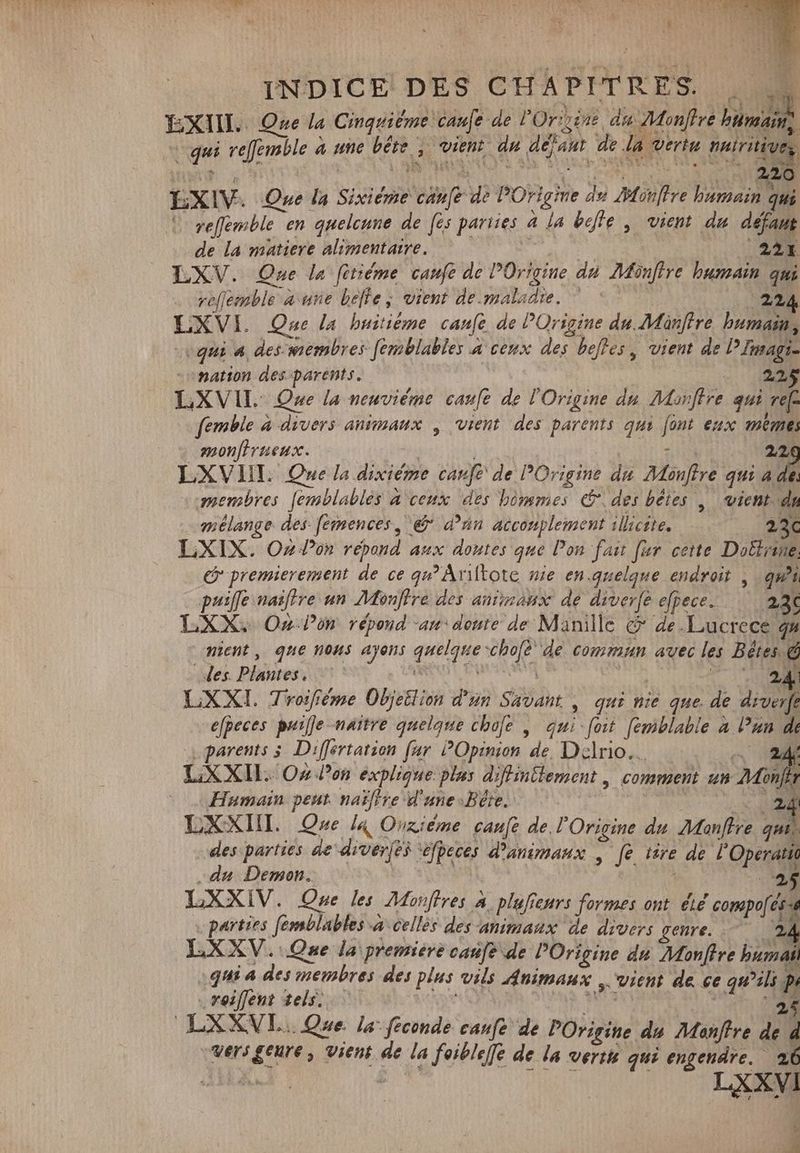 INDICE DES CHAPITRES.
LXIII. Que la Cinquiéme cauſe de l'Origine du Monſtre humain,
qui reſſemble à une béte, vient du défaut de la vertu nutritive,
220
LXIV. Que la Sixiéme cauſe de l'Origine du Monſtre humain qui
reſſemble en quelcune de ſes parties à la beſte, vient du défaut
de la matiere alimentaire. 221
LXV. Que la ſetiéme cauſe de l'Origine du Monſtre humain qui
reſſemble à une beſte, vient de maladie. 224
LXVI. Que la huitiéme cauſe de l'Origine du Monſtre humain,
qui a des membres ſemblables à ceux des beſtes, vient de l'Imagi-
nation des parents. 225
LXVII. Que la neuviéme cauſe de l'Origine du Monſtre qui reſ-
ſemble à divers animaux, vient des parents qui ſont eux mêmes
monſtrueux. 229
LXVIII. Que la dixiéme cauſe de l'Origine du Monſtre qui a des
membres ſemblables à ceux des hommes & des bêtes, vient du
mélange des ſemences, & d'un accouplement illicite. 230
LXIX. Où l'on répond aux doutes que l'on fait ſur cette Doctrine,
& premierement de ce qu'Ariſtote nie en quelque endroit, qu'il
puiſſe naiſtre un Monſtre des animaux de diverſe eſpece. 23
LXX. Où l'on répond au doute de Manille & de Lucrece qu
nient, que nous ayons quelque choſe de commun avec les Bêtes &
les Plantes. 24
LXXI. Troiſiéme Objection d'un Savant, qui nie que de diverſe
eſpeces puiſſe naitre quelque choſe, qui ſoit ſemblable à l'un de
parents; Diſſertation ſur l'Opinion de Delrio. 24
LXXII. Où l'on explique plus diſtinctement, comment un Monſtr
Humain peut naiſtre d'une Bête. 24
LXXIII. Que la Onziéme cauſe de l'Origine du Monſtre qui
des parties de diverſes eſpeces d'animaux, ſe tire de l'Operatio
du Demon. 25
LXXIV. Que les Monſtres à pluſieurs formes ont été compoſés de
parties ſemblables à celles des animaux de divers genre. 24
LXXV. Que la premiere cauſe de l'Origine du Monſtre humain
qui a des membres des plus vils Animaux, vient de ce qu'ils p
roiſſent tels. 25
LXXVI. Que la ſeconde cauſe de l'Origine du Monſtre de d
vers genre, vient de la foibleſſe de la vertu qui engendre. 26
LXXVI